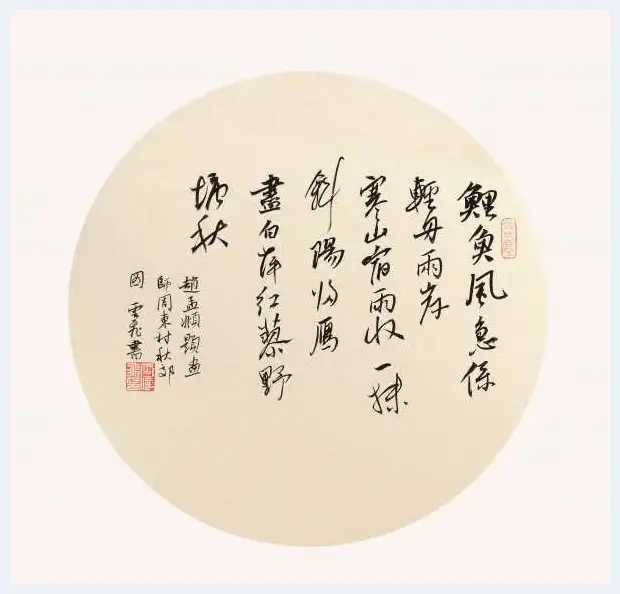 鯉魚風急係
輕舟兩岸
寒山宿雨收一抹
斜陽归雁
盡白萍紅蓼野
塘秋
趙孟頫題畫
師周東村秋郊
書